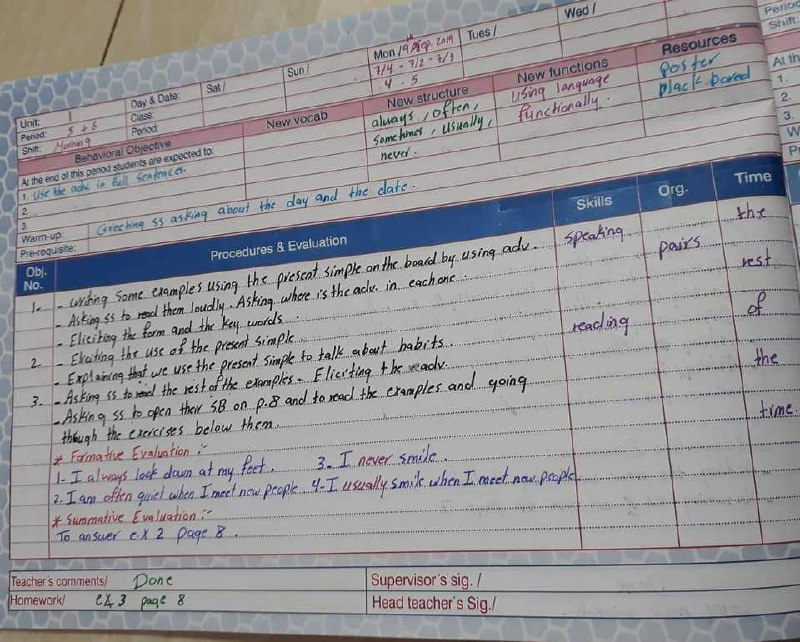 Unit: 1
Period: 5 + 6
Shift: Morning
Day & Date:
Class:
Period:
Sat /
Sun /
Mon / 9th Sep. 2019
7/4 - 7/2 - 7/3
4 - 5
Tues /
Wed /
Period
Shift:
Behavioral Objective
New vocab
New structure
New functions
Resources
At the end of this period students are expected to:
1. Use the advs in full sentences.
2.
3.
always, often,
sometimes, usually,
never.
using language
functionally.
Poster
plack bored
At th
1.
2.
3.
Warm-up: Greeting ss asking about the day and the date.
Pre-requisite:
Obj. No.
Procedures & Evaluation
Skills
Org.
Time
1- - writing some examples using the present simple on the board by using adv.
- Asking ss to read them loudly. Asking where is the adv. in each one.
- Eliciting the form and the key words.
2 - Eliciting the use of the present simple.
- Explaining that we use the present simple to talk about habits.
3- - Asking ss to read the rest of the examples. Eliciting the adv.
- Asking ss to open their SB on p.8 and to read the examples and going
though the exercises below them.
speaking
reading
pairs
the
rest
of
the
time.
* Formative Evaluation :-
1- I always look down at my feet. 3- I never smile.
2. I am often quiet when I meet new people 4- I usually smile when I meet new people
* Summative Evaluation :-
To answer ex 2 page 8.
Teacher's comments/ Done
Supervisor's sig. /
Homework/ ex 3 page 8
Head teacher's Sig./